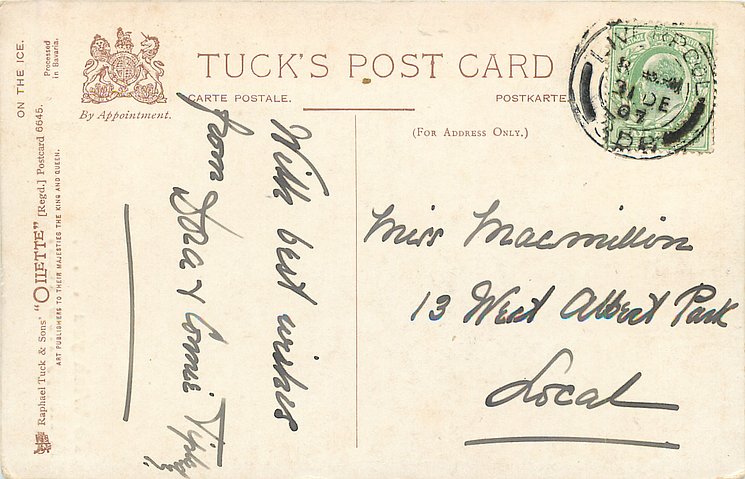 ON THE ICE.
Processed
in Bavaria.
By Appointment.
TUCK'S POST CARD
CARTE POSTALE.
POSTKARTE.
(FOR ADDRESS ONLY.)
Raphael Tuck & Sons' "OILETTE" [Regd.] Postcard 6645.
ART PUBLISHERS TO THEIR MAJESTIES THE KING AND QUEEN.
LIVERPOOL
31 DE
07
With best wishes
from Dora & Connie
Miss Macmillan
13 West Albert Park
Local